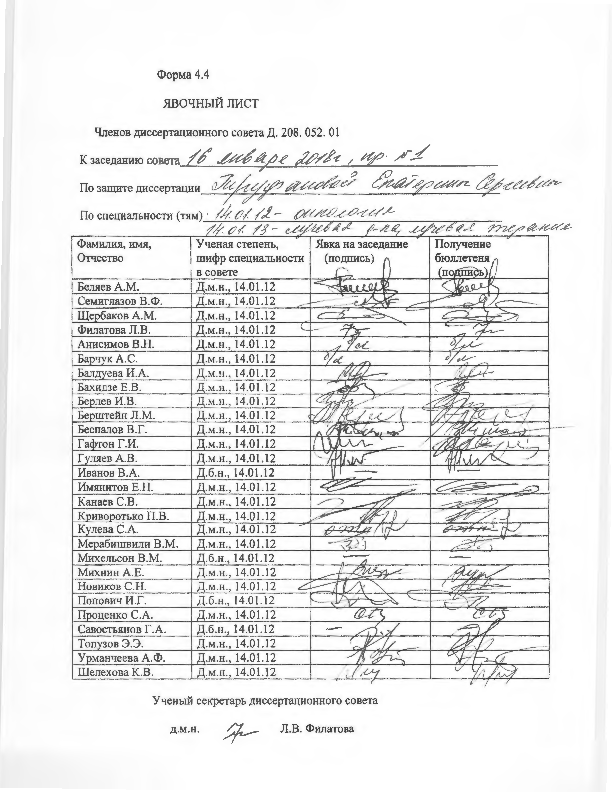 Форма 4.4
ЯВОЧНЫЙ ЛИСТ
Членов диссертационного совета Д. 208. 052. 01
К заседанию совета 16 января 2018г, пр. №1
По защите диссертации Екатерины Сергеевны
По специальности (тям) 14.01.12 - онкология
14.01.13 - лучевая д-ка, лучевая терапия
Фамилия, имя, Отчество Ученая степень, шифр специальности в совете Явка на заседание (подпись) Получение бюллетеня (подпись)
Беляев А.М. Д.м.н., 14.01.12
Семиглазов В.Ф. Д.м.н., 14.01.12
Щербаков А.М. Д.м.н., 14.01.12
Филатова Л.В. Д.м.н., 14.01.12
Анисимов В.Н. Д.м.н., 14.01.12 б/л б/л
Барчук А.С. Д.м.н., 14.01.12 б/л б/л
Балдуева И.А. Д.м.н., 14.01.12
Бахидзе Е.В. Д.м.н., 14.01.12
Берлев И.В. Д.м.н., 14.01.12
Берштейн Л.М. Д.м.н., 14.01.12
Беспалов В.Г. Д.м.н., 14.01.12
Гафтон Г.И. Д.м.н., 14.01.12
Гуляев А.В. Д.м.н., 14.01.12
Иванов В.А. Д.б.н., 14.01.12
Имянитов Е.Н. Д.м.н., 14.01.12
Канаев С.В. Д.м.н., 14.01.12
Криворотько П.В. Д.м.н., 14.01.12
Кулева С.А. Д.м.н., 14.01.12
Мерабишвили В.М. Д.м.н., 14.01.12
Михельсон В.М. Д.б.н., 14.01.12
Михнин А.Е. Д.м.н., 14.01.12
Новиков С.Н. Д.м.н., 14.01.12
Попович И.Г. Д.б.н., 14.01.12
Проценко С.А. Д.м.н., 14.01.12
Савостьянов Г.А. Д.б.н., 14.01.12
Топузов Э.Э. Д.м.н., 14.01.12
Урманчеева А.Ф. Д.м.н., 14.01.12
Шелехова К.В. Д.м.н., 14.01.12
Ученый секретарь диссертационного совета
д.м.н. Л.В. Филатова